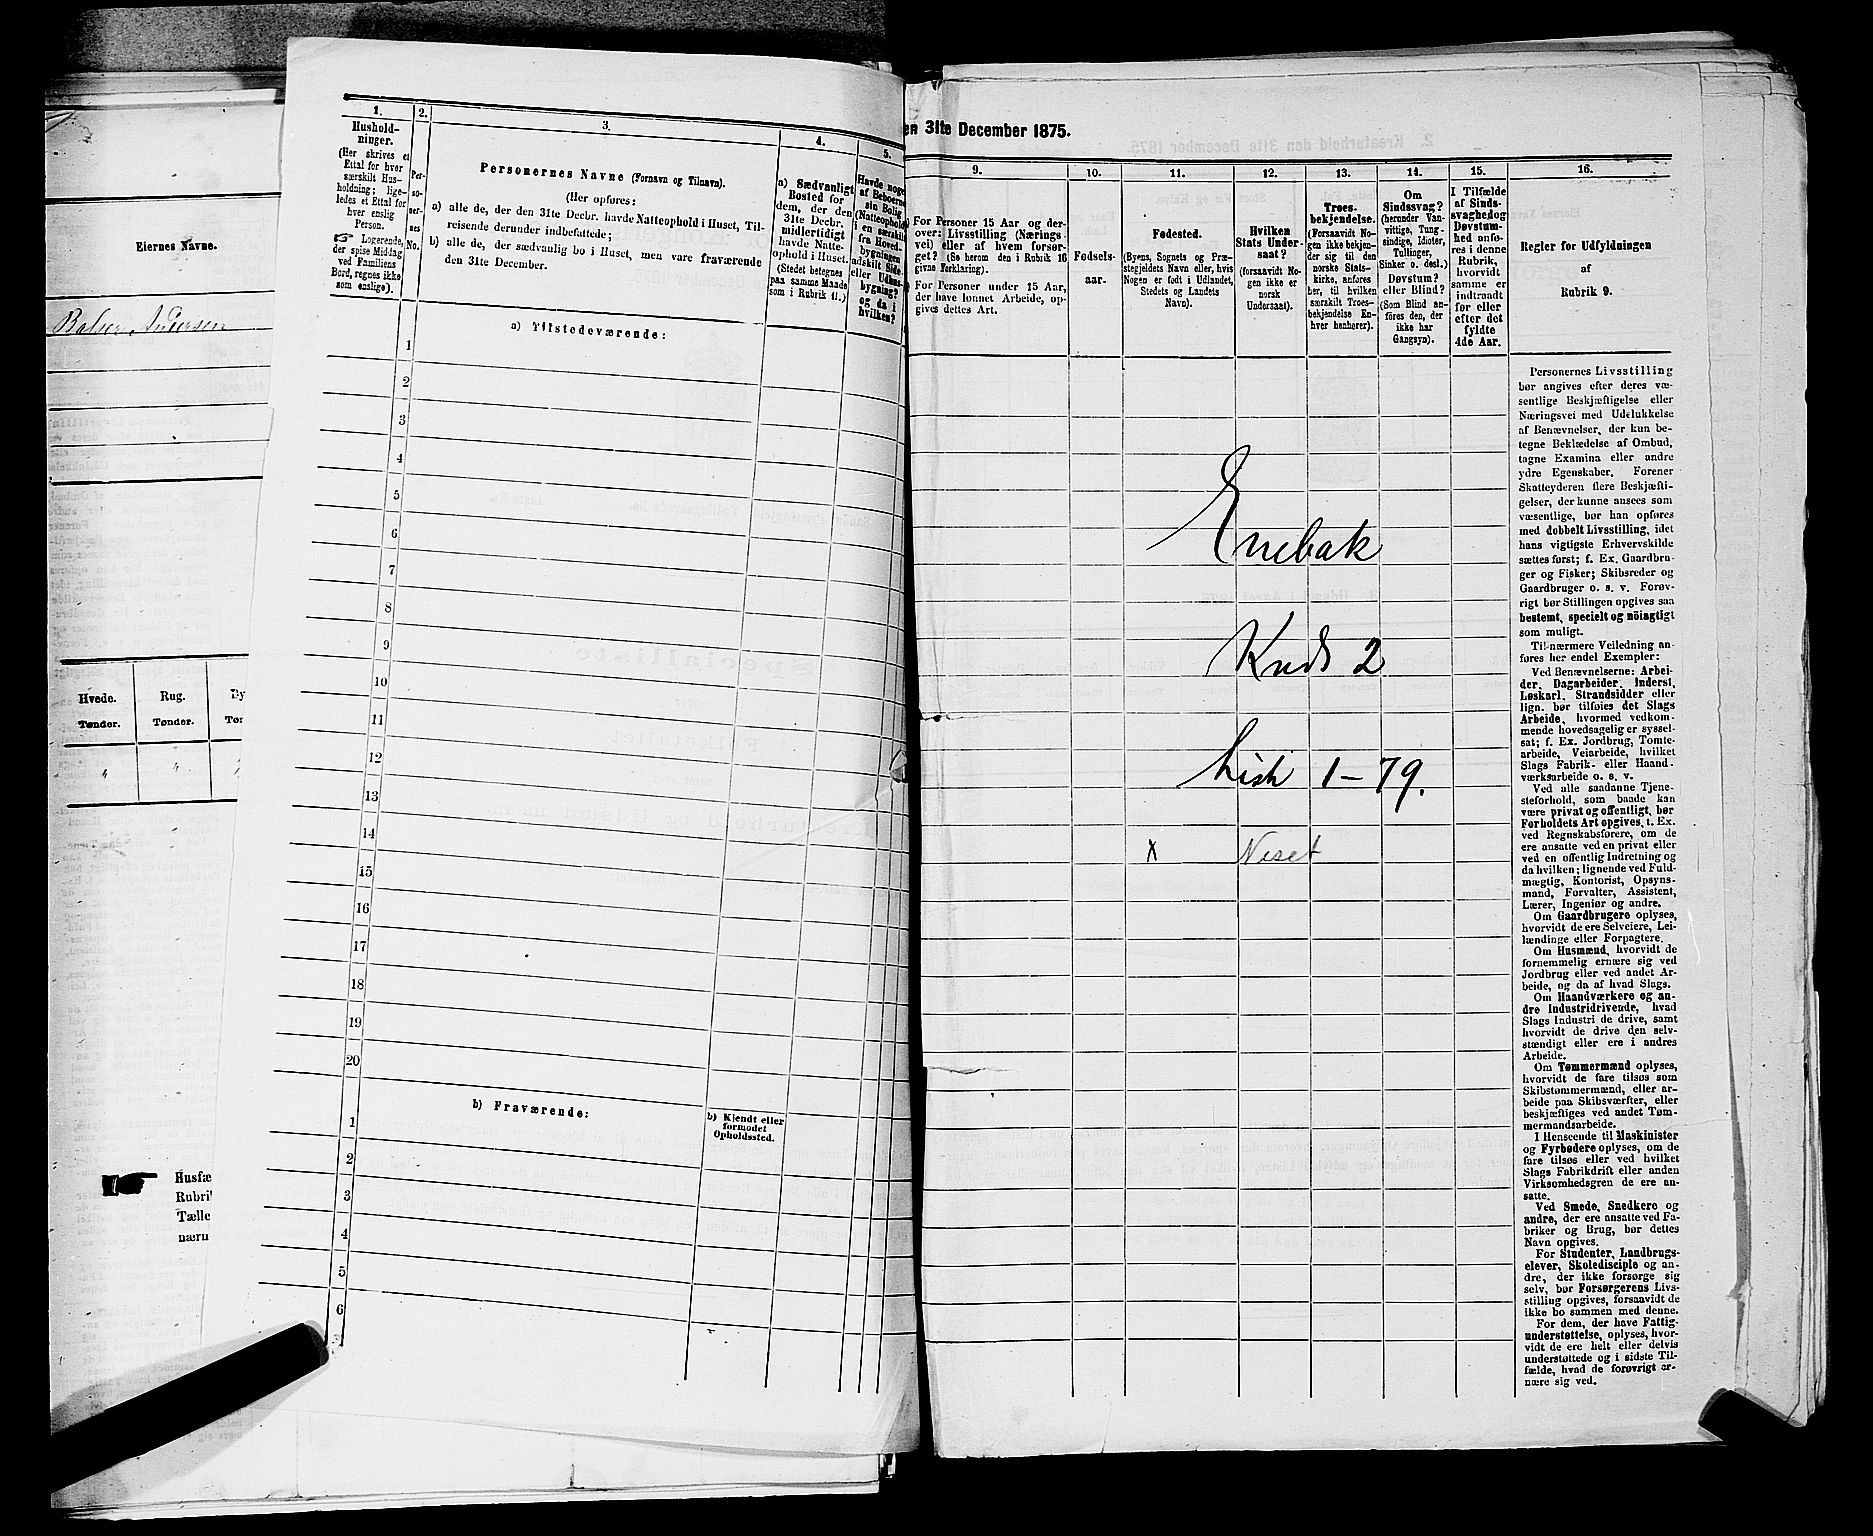 Eiernes Navne.
Andersen
Hvede.
Rug.
Tønder.
Tønder.
Husfæ
Rubri
Tælle
nærn
1.
2.
3.
4.
5.
Hushold-
ninger.
(Her skrives et
Ettal for hver
særskilt Hus-
holdning; lige-
ledes et Ettal for
hver enslig
Person.
☞ Logerende,
der spise Middag
ved Familiens
Bord, regnes ikke
som enslige).
Per-
so-
ner-
nes
No.
Personernes Navne (Fornavn og Tilnavn).
(Her opføres:
a) alle de, der den 31te Decbr. havde Natteophold i Huset, Til-
reisende derunder indbefattede;
b) alle de, der sædvanlig bo i Huset, men vare fraværende
den 31te December.
a) Sædvanligt
Bosted for
dem, der den
31te Decbr.
midlertidigt
havde Natte-
ophold i Huset.
(Stedet betegnes
paa samme Maade
som i Rubrik 11.)
Havde noge
af Beboerne
sin Bolig
(Natteophold)
i en særskilt
fra Hoved-
bygningen
adskilt Side-
eller Udhus-
bygning?
og da i
hvilken?
a) Tilstedeværende:
1
2
3
4
5
6
7
8
9
10
11
12
13
14
15
16
17
18
19
20
b) Fraværende:
b) Kjendt eller
formodet
Opholdssted.
1
2
3
4
5
6
en 31te December 1875.
9.
10.
11.
12.
13.
14.
15.
16.
For Personer 15 Aar og der-
over: Livsstilling (Nærings
vei) eller af hvem forsør-
get? (Se herom den i Rubrik 16
givne Forklaring).
For Personer under 15 Aar,
der have lønnet Arbeide, op-
gives dettes Art.
Fødsels-
aar.
Fødested.
(Byens, Sognets og Præ-
stegjeldets Navn eller, hvis
Nogen er født i Udlandet,
Stedets og Landets
Navn).
Hvilken
Stats Under-
saat?
(forsaavidt No-
gen ikke er
norsk
Undersaat).
Troes-
bekjendelse.
(Forsaavidt No-
gen ikke bekjen-
der sig til den
norske Stats-
kirke, anføres
her, til hvilken
særskilt Troes-
bekjendelse En-
hver henhører).
Om
Sindssvag?
(herunder Van-
vittige, Tung-
sindige, Idioter,
Tullinger,
Sinker o. desl.)
Døvstum?
eller Blind?
(Som Blind an-
føres den, der
ikke har
Gangsyn).
I Tilfælde
af Sinds-
svaghed og
Døvstum-
hed anfø-
res i denne
Rubrik,
hvorvidt
samme er
indtraadt
før eller
efter det
fyldte
4de Aar.
Regler for Udfyldningen
af
Rubrik 9.
Enebak
Kreds 2
Liste 1-79.
x Neset
Personernes Livsstilling
bør angives efter deres væ-
sentlige Beskjæftigelse eller
Næringsvei med Udelukkelse
af Benævnelser, der kun be-
tegne Beklædelse af Ombud,
tagne Examina eller andre
ydre Egenskaber. Forener
Skatteyderen flere Beskjæfti-
gelser, der kunne ansees som
væsentlige, bør han opføres
med dobbelt Livsstilling, idet
hans vigtigste Erhvervskilde
sættes først; f. Ex. Gaardbru-
ger og Fisker; Skibsreder og
Gaardbruger o. s. v. Forøv-
rigt bør Stillingen opgives saa
bestemt, specielt og nöiagtigt
som muligt.
Til nærmere Veiledning an-
føres her endel Exempler:
Ved Benævnelserne: Arbei-
der, Dagarbeider, Inderst,
Løskarl, Strandsidder eller
lign. bør tilføies det Slags
Arbeide, hvormed vedkom-
mende hovedsagelig er syssel-
sat; f. Ex. Jordbrug, Tomte-
arbeide, Veiarbeide, hvilket
Slags Fabrik- eller Haand-
værksarbeide o. s. v.
Ved alle saadanne Tjene-
steforhold, som baade kan
være privat og offentligt, bør
Forholdets Art opgives, t. Ex.
ved Regnskabsførere, om de
ere ansatte ved en privat eller
ved en offentlig Indretning og
da hvilken; lignende ved Fuld-
mægtig, Kontorist, Opsyns-
mand, Forvalter, Assistent,
Lærer, Ingeniør og andre.
Om Gaardbrugere oplyses,
hvorvidt de ere Selveiere, Lei-
lændinge eller Forpagtere.
Om Husmænd, hvorvidt de
fornemmelig ernære sig ved
Jordbrug eller ved andet Ar-
beide, og da af hvad Slags.
Om Haandværkere og an-
dre Industridrivende, hvad
Slags Industri de drive, samt
hvorvidt de drive den selv-
stændigt eller ere i andres
Arbeide.
Om Tømmermænd oplyses,
hvorvidt de fare tilsøs som
Skibstømmermænd, eller ar-
beide paa Skibsværfter, eller
beskjæftiges ved andet Tøm-
mermandsarbeide.
I Henseende til Maskinister
og Fyrbødere oplyses, om de
fare tilsøs eller ved hvilket
Slags Fabrikdrift eller anden
Virksomhedsgren de ere an-
satte.
Ved Smede, Snedkere og
andre, der ere ansatte ved Fa-
briker og Brug, bør dettes
Navn opgives.
For Studenter, Landbrugs-
elever, Skoledisciple og an-
dre, der ikke forsørge sig
selv, bør Forsørgerens Livs-
stilling opgives, forsaavidt de
ikke bo sammen med denne.
For dem, der have Fattig-
understøttelse, oplyses, hvor-
vidt de ere helt eller delvis
understøttede og i sidste Til-
fælde, hvad de forøvrigt er-
nære sig ved.